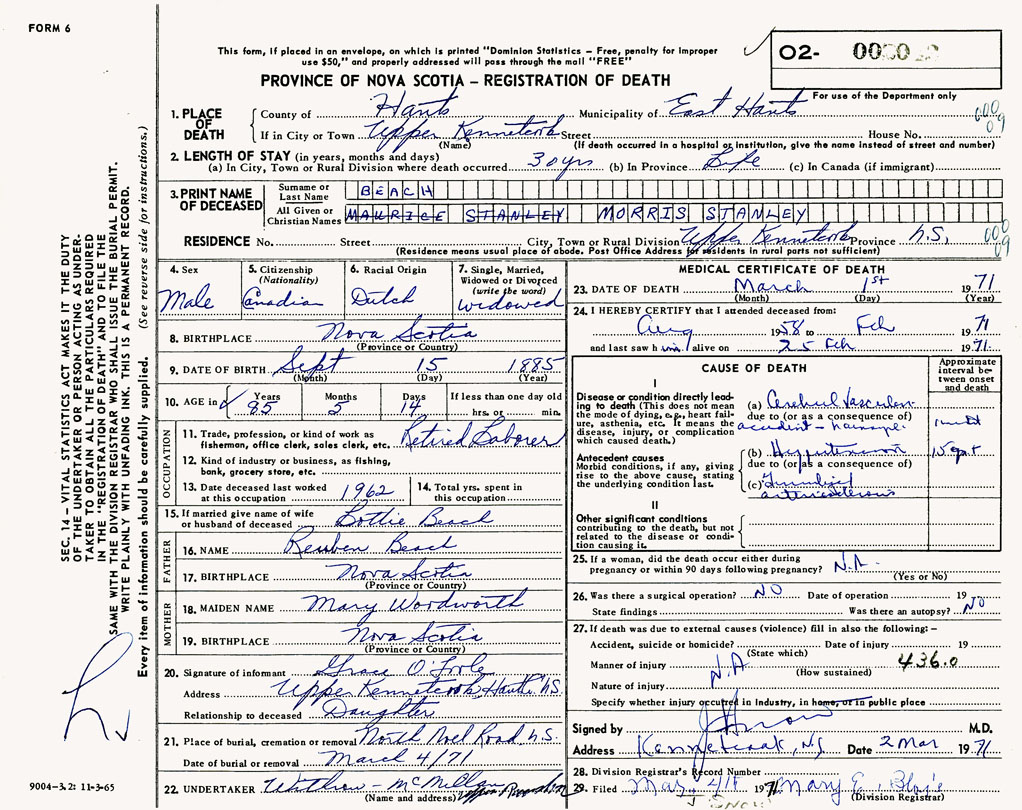 FORM 6
This form, if placed in an envelope, on which is printed "Dominion Statistics – Free, penalty for improper
use $50," and properly addressed will pass through the mail "FREE"
PROVINCE OF NOVA SCOTIA – REGISTRATION OF DEATH
O2-
For use of the Department only
1. PLACE OF DEATH
County of Hants Municipality of East Hants
If in City or Town Upper Kennetcook Street House No.
(Name) (If death occurred in a hospital or institution, give the name instead of street and number)
2. LENGTH OF STAY (in years, months and days)
(a) In City, Town or Rural Division where death occurred 30 yrs (b) In Province Life (c) In Canada (if immigrant)
3. PRINT NAME OF DECEASED
Surname or Last Name BEACH
All Given or Christian Names MAURICE STANLEY MORRIS STANLEY
RESIDENCE No. Street City, Town or Rural Division Upper Kennetcook Province N.S,
(Residence means usual place of abode. Post Office Address for residents in rural parts not sufficient)
4. Sex
Male
5. Citizenship
(Nationality)
Canadian
6. Racial Origin
Dutch
7. Single, Married,
Widowed or Divorced
(write the word)
Widowed
8. BIRTHPLACE Nova Scotia
(Province or Country)
9. DATE OF BIRTH Sept 15 1885
(Month) (Day) (Year)
10. AGE in Years Months Days If less than one day old
85 5 14 hrs. or min.
OCCUPATION
11. Trade, profession, or kind of work as
fisherman, office clerk, sales clerk, etc. Retired Laborer
12. Kind of industry or business, as fishing,
bank, grocery store, etc.
13. Date deceased last worked
at this occupation 1962
14. Total yrs. spent in
this occupation
15. If married give name of wife
or husband of deceased Lottie Beach
FATHER
16. NAME Reuben Beach
17. BIRTHPLACE Nova Scotia
(Province or Country)
MOTHER
18. MAIDEN NAME Mary Wordworth
19. BIRTHPLACE Nova Scotia
(Province or Country)
20. Signature of informant Grace O'Toole
Address Upper Kennetcook, Hants, N.S.
Relationship to deceased Daughter
21. Place of burial, cremation or removal North Noel Road, N.S.
Date of burial or removal March 4/71
22. UNDERTAKER Withrow - McMillan
(Name and address)
MEDICAL CERTIFICATE OF DEATH
23. DATE OF DEATH March 1st 1971
(Month) (Day) (Year)
24. I HEREBY CERTIFY that I attended deceased from:
Aug 1958 to Feb 1971
and last saw h im alive on 25 Feb 1971
CAUSE OF DEATH
Approximate
interval be-
tween onset
and death
I
Disease or condition directly lead-
ing to death (This does not mean
the mode of dying, e.g., heart fail-
ure, asthenia, etc. It means the
disease, injury, or complication
which caused death.)
(a) Cerebral Vascular
due to (or as a consequence of)
accident -
Antecedent causes
Morbid conditions, if any, giving
rise to the above cause, stating
the underlying condition last.
(b) Hypertension
due to (or as a consequence of)
(c) Generalized
arteriosclerosis
II
Other significant conditions
contributing to the death, but not
related to the disease or condi-
tion causing it.
25. If a woman, did the death occur either during
pregnancy or within 90 days following pregnancy? N.A.
(Yes or No)
26. Was there a surgical operation? NO Date of operation 19
State findings Was there an autopsy? NO
27. If death was due to external causes (violence) fill in also the following: –
Accident, suicide or homicide? Date of injury 19
(State which)
Manner of injury N.A 436.0
(How sustained)
Nature of injury
Specify whether injury occurred in Industry, in home, or in public place
Signed by M.D.
Address Kennetcook, NS Date 2 Mar 1971
28. Division Registrar's Record Number
29. Filed Mar. 4/71 1971 Mary E.
(Division Registrar)
SEC. 14 – VITAL STATISTICS ACT MAKES IT THE DUTY
OF THE UNDERTAKER OR PERSON ACTING AS UNDER-
TAKER TO OBTAIN ALL THE PARTICULARS REQUIRED
IN THE "REGISTRATION OF DEATH" AND TO FILE THE
SAME WITH THE DIVISION REGISTRAR WHO SHALL ISSUE THE BURIAL PERMIT.
WRITE PLAINLY WITH UNFADING INK. THIS IS A PERMANENT RECORD.
Every item of information should be carefully supplied. (See reverse side for instructions.)
9004-3.2: 11-3-65